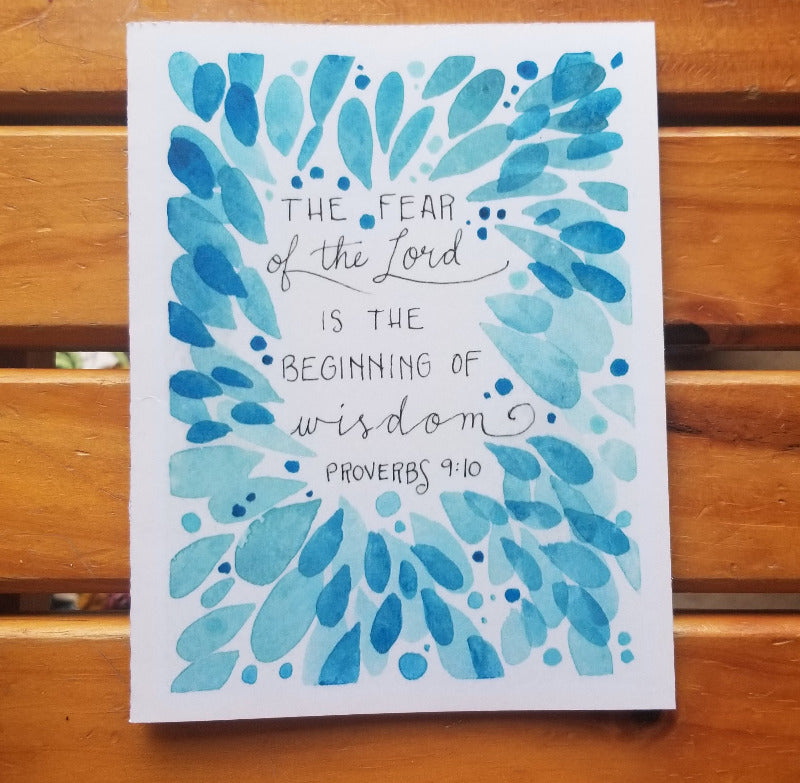 THE FEAR
of the Lord
IS THE
BEGINNING OF
wisdom
PROVERBS 9:10